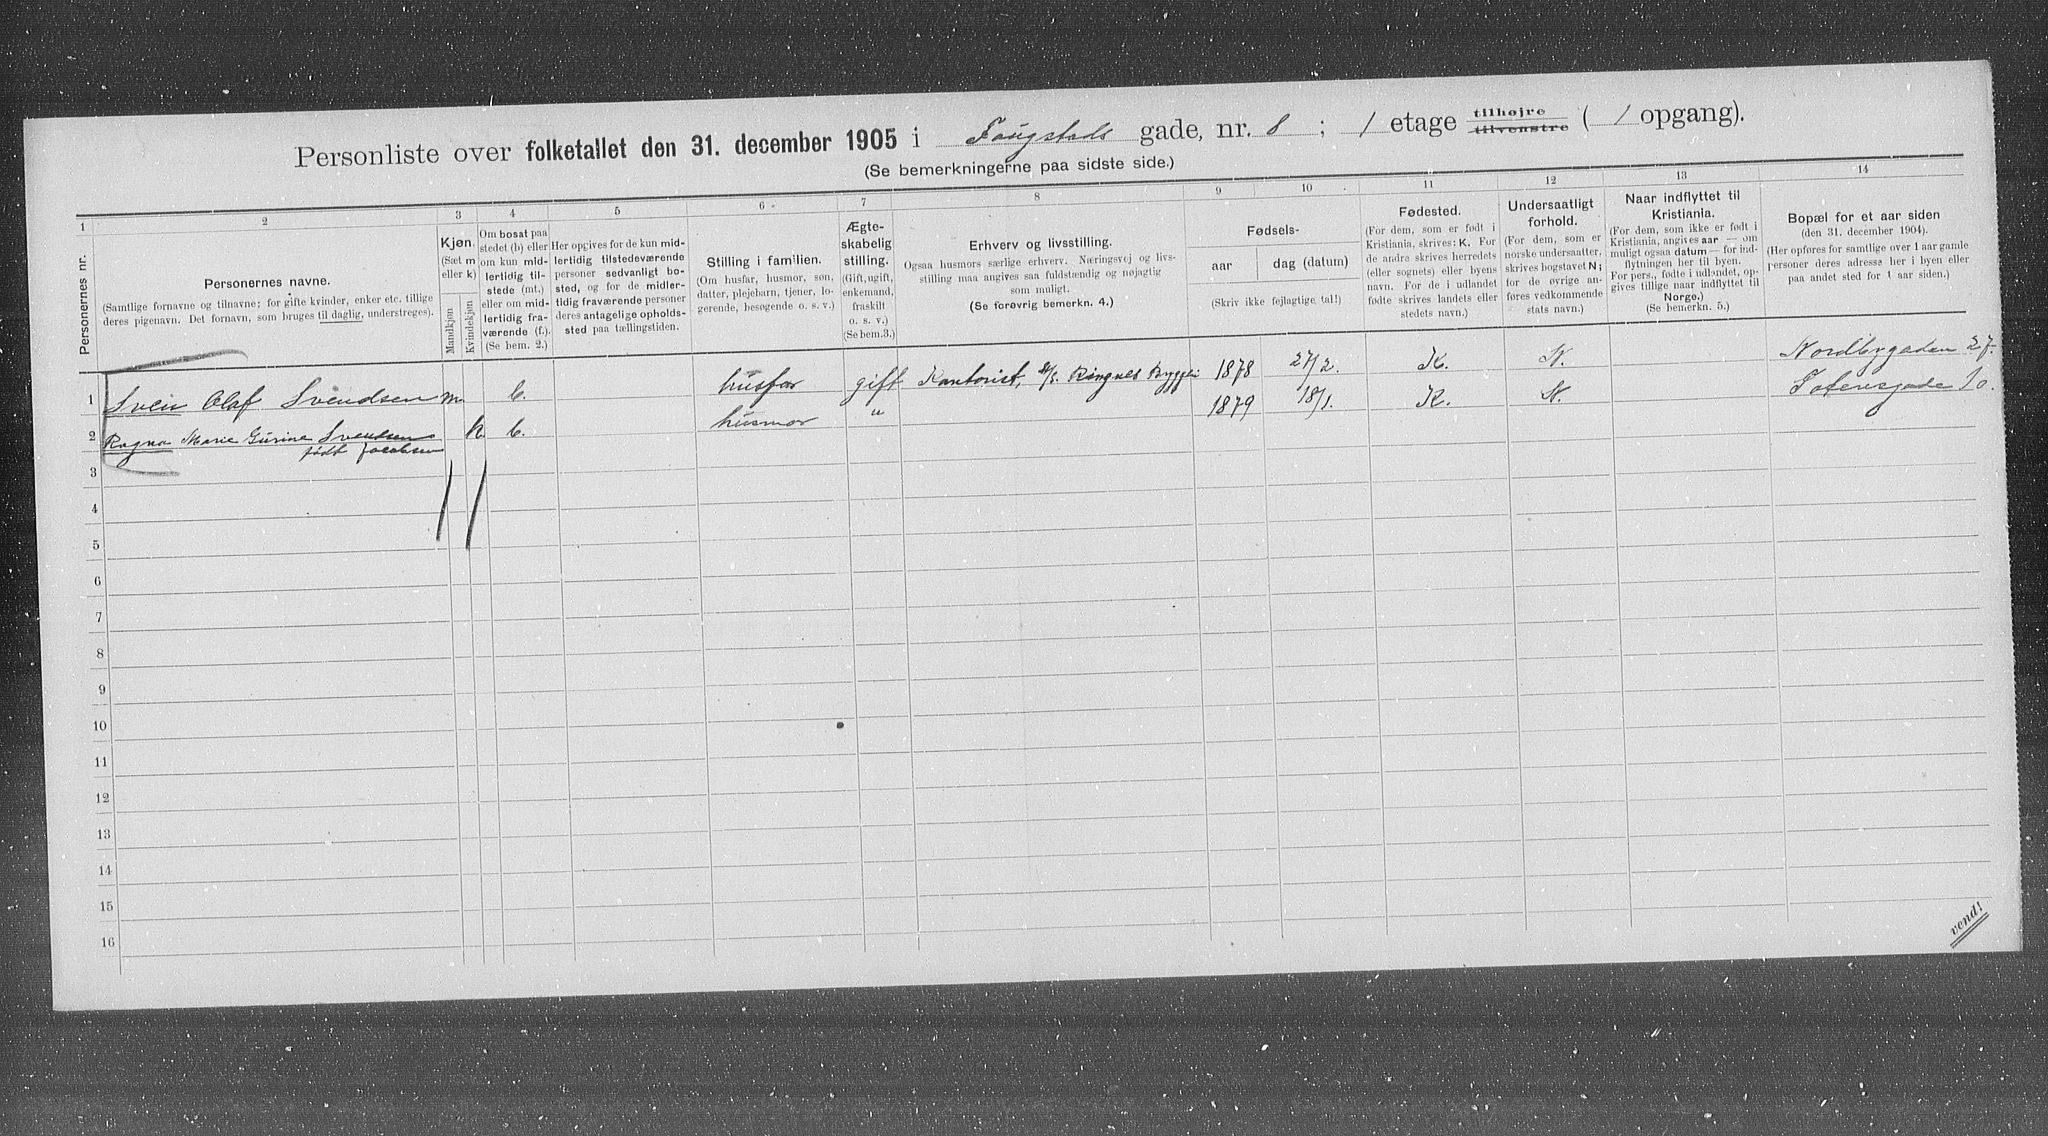 Personliste over folketallet den 31. december 1905 i Faugstads gade, nr. 8 ; 1 etage tilhøjre tilvenstre ( 1 opgang).
(Se bemerkningerne paa sidste side.)
1 2 3 4 5 6 7 8 9 10 11 12 13 14
Personernes nr.
Personernes navne.
(Samtlige fornavne og tilnavne; for gifte kvinder, enker etc. tillige
deres pigenavn. Det fornavn, som bruges til daglig, understreges).
Kjøn.
(Sæt m
eller k)
Mandkjøn
Kvindekjøn
Om bosat paa
stedet (b) eller
om kun mid-
lertidig til-
stede (mt.)
eller om mid-
lertidig fra-
værende (f.).
(Se bem. 2.)
Her opgives for de kun mid-
lertidig tilstedeværende
personer sedvanligt bo-
sted, og for de midler-
tidig fraværende personer
deres antagelige opholds-
sted paa tællingstiden.
Stilling i familien.
(Om husfar, husmor, søn,
datter, plejebarn, tjener, lo-
gerende, besøgende o. s. v.)
Ægte-
skabelig
stilling.
(Gift, ugift,
enkemand,
fraskilt
o. s. v.)
(Se bem.3.)
Erhverv og livsstilling.
Ogsaa husmors særlige erhverv. Næringsvej og livs-
stilling maa angives saa fuldstændig og nøjagtig
som muligt.
(Se forøvrig bemerkn. 4.)
Fødsels-
aar
dag (datum)
(Skriv ikke fejlagtige tal!)
Fødested.
(For dem, som er født i
Kristiania, skrives: K. For
de andre skrives herredets
(eller sognets) eller byens
navn. For de i udlandet
fødte skrives landets eller
stedets navn.)
Undersaatligt
forhold.
(For dem, som er
norske undersaatter,
skrives bogstavet N;
for de øvrige an-
føres vedkommende
stats navn.)
Naar indflyttet til
Kristiania.
(For dem, som ikke er født i
Kristiania, angives aar — om
muligt ogsaa datum — for ind-
flytningen her til byen.
For pers., fødte i udlandet, op-
gives tillige naar indflyttet til
Norge.)
(Se bemerkn. 5.)
Bopæl for et aar siden
(den 31. december 1904).
(Her opføres for samtlige over 1 aar gamle
personer deres adresse her i byen eller
paa andet sted for 1 aar siden.)
1 Svein Olaf Svendsen m. b. husfar gift Kontorist, Ringnes Bryggeri 1878 27/2. K. N. Nordbygaden 27.
2 Ragna Marie Gurine Svendsen k. b. husmor " 1879 18/1. K. N. Toftersgade 10.
født Jacobsen
3
4
5
6
7
8
9
10
11
12
13
14
15
16
vend!